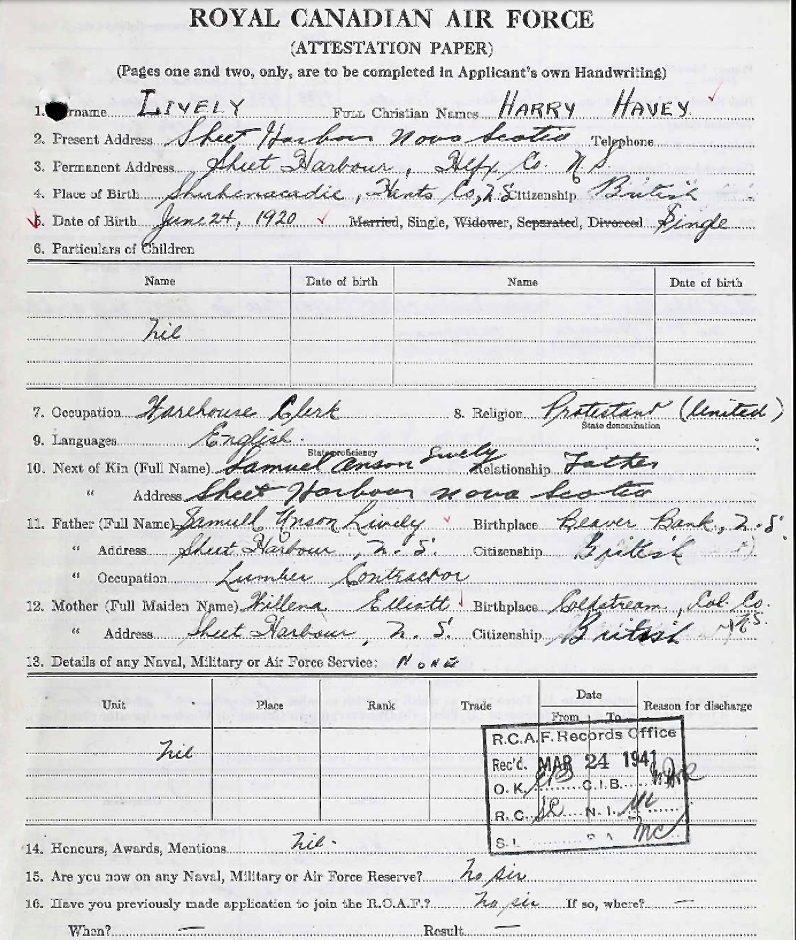 ROYAL CANADIAN AIR FORCE
(ATTESTATION PAPER)
(Pages one and two, only, are to be completed in Applicant's own Handwriting)
1. urname LIVELY FULL Christian Names HARRY HAVEY
2. Present Address Sheet Harbour Nova Scotia Telephone
3. Permanent Address Sheet Harbour, Hlfx Co. N S
4. Place of Birth Shubenacadie, Hants Co, N.S Citizenship British
5. Date of Birth June 24, 1920 Married, Single, Widower, Separated, Divorced Single
6. Particulars of Children
Name Date of birth Name Date of birth
nil
7. Occupation Warehouse Clerk 8. Religion Protestant (United)
State denomination
9. Languages English
State proficiency
10. Next of Kin (Full Name) Samuel Anson Lively Relationship Father
" Address Sheet Harbour Nova Scotia
11. Father (Full Name) Samuell Anson Lively Birthplace Beaver Bank, N.S.
" Address Sheet Harbour, N.S. Citizenship British
" Occupation Lumber Contractor
12. Mother (Full Maiden Name) Willena Elliott Birthplace Coldstream, Col. Co. N.S.
" Address Sheet Harbour, N.S. Citizenship British
13. Details of any Naval, Military or Air Force Service: None
Unit Place Rank Trade Date From To Reason for discharge
nil
R.C.A.F. Records Office
Rec'd. MAR 24 1941
O.K. C.I.B.
R.C. N.I.
S.I.
14. Honours, Awards, Mentions nil.
15. Are you now on any Naval, Military or Air Force Reserve? No sir
16. Have you previously made application to join the R.C.A.F.? No sir If so, where? —
When? — Result —